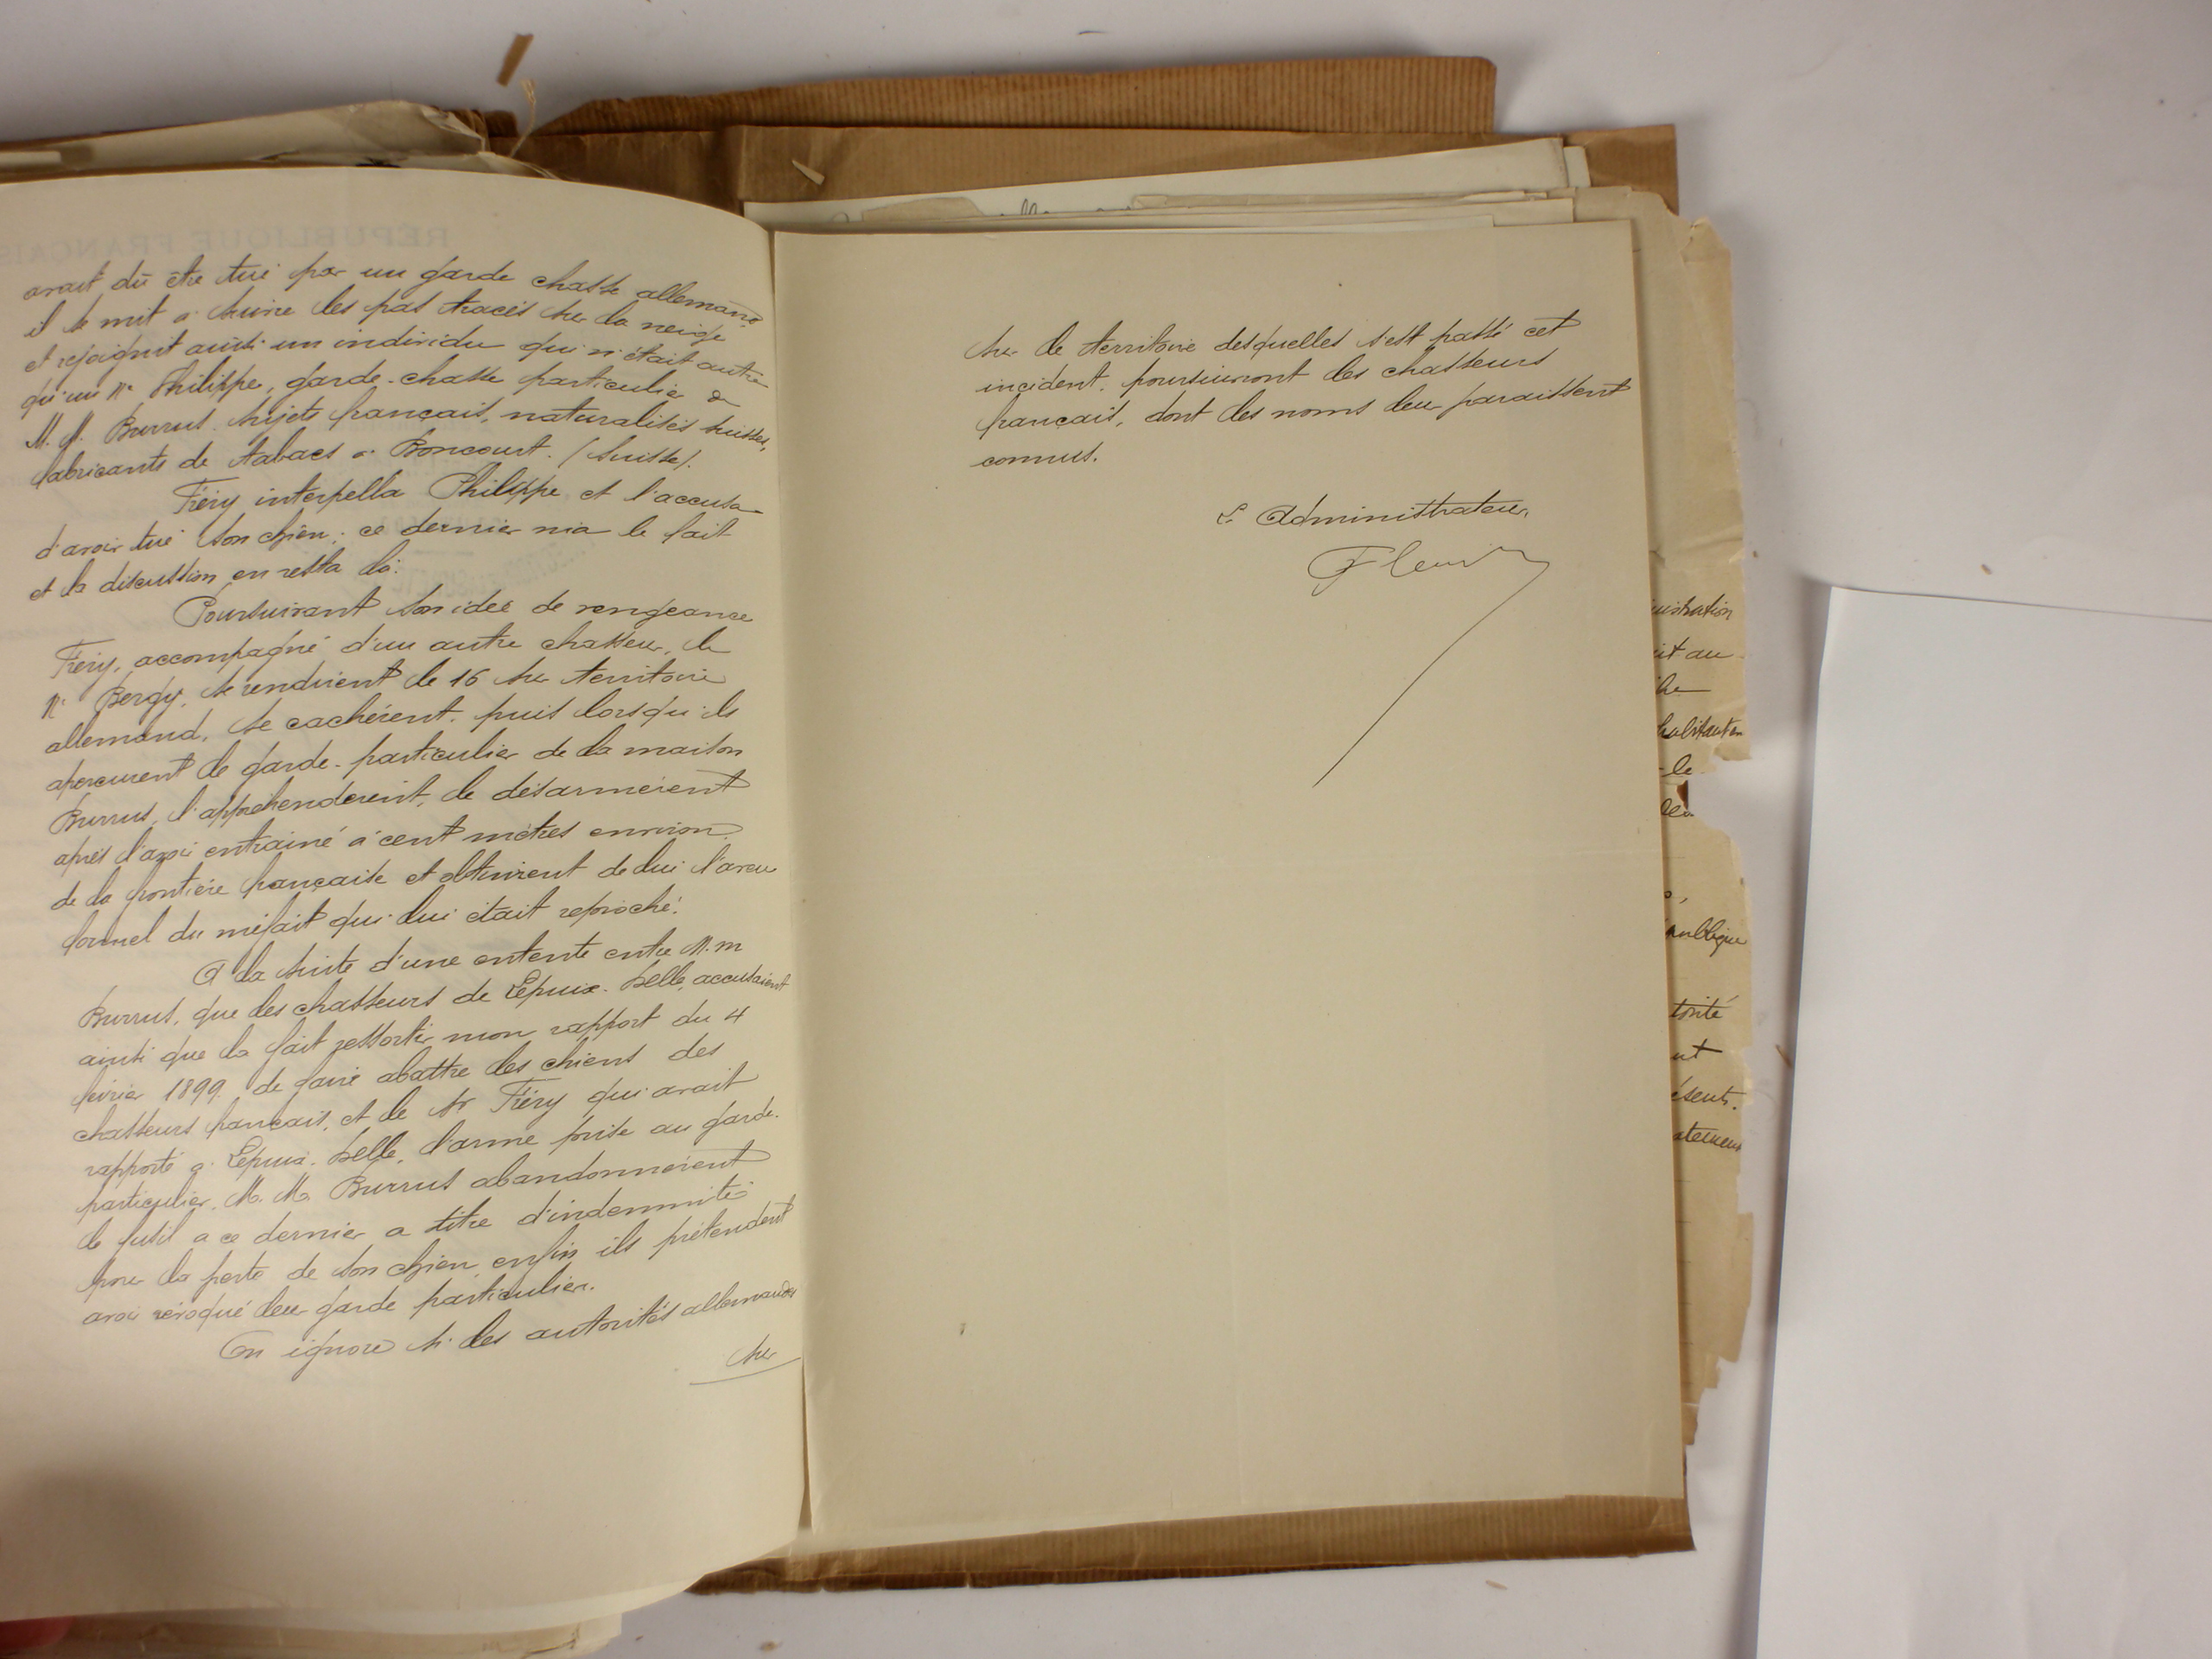 avait dû être tué par un garde chasse allemand,
il se mit à suivre les pas tracés sur la neige
et rejoignit ainsi un individu qui n'était autre
qu'un Mr Philippe, garde-chasse particulier de
M. M. Burrus sujets français, naturalisés suisses,
fabricants de tabacs à Boncourt. (Suisse).
Fréry interpella Philippe et l'accusa
d'avoir tué son chien; ce dernier nia le fait
et la discussion en resta là.
Poursuivant son idée de vengeance
Fréry, accompagné d'un autre chasseur, le
Mr Bergy, se rendirent le 16 sur territoire
allemand, se cachèrent, puis lorsqu'ils
aperçurent le garde-particulier de la maison
Burrus, l'appréhendèrent, le désarmèrent
après l'avoir entrainé à cent mètres environ
de la frontière française et obtinrent de lui l'aveu
formel du méfait qui lui était reproché.
A la suite d'une entente entre M. m
Burrus, que les chasseurs de Lepuix-Delle, accusaient
ainsi que la fait ressortir mon rapport du 4
février 1899, de faire abattre les chiens des
chasseurs français, et le Sr Fréry qui avait
rapporté à Lepuix-Delle, l'arme prise au garde-
particulier, M. M. Burrus abandonnèrent
le fusil a ce dernier a titre d'indemnité
pour la perte de son chien, enfin ils prétendent
avoir révoqué leur garde particulier.
On ignore si les autorités allemandes
sur
sur le territoire desquelles s'est passé cet
incident, poursuivront les chasseurs
français, dont les noms leur paraissent
connus.
L'Administrateur,
ministration
it au
habitant en
-le
publique
torité
ut
ésent.